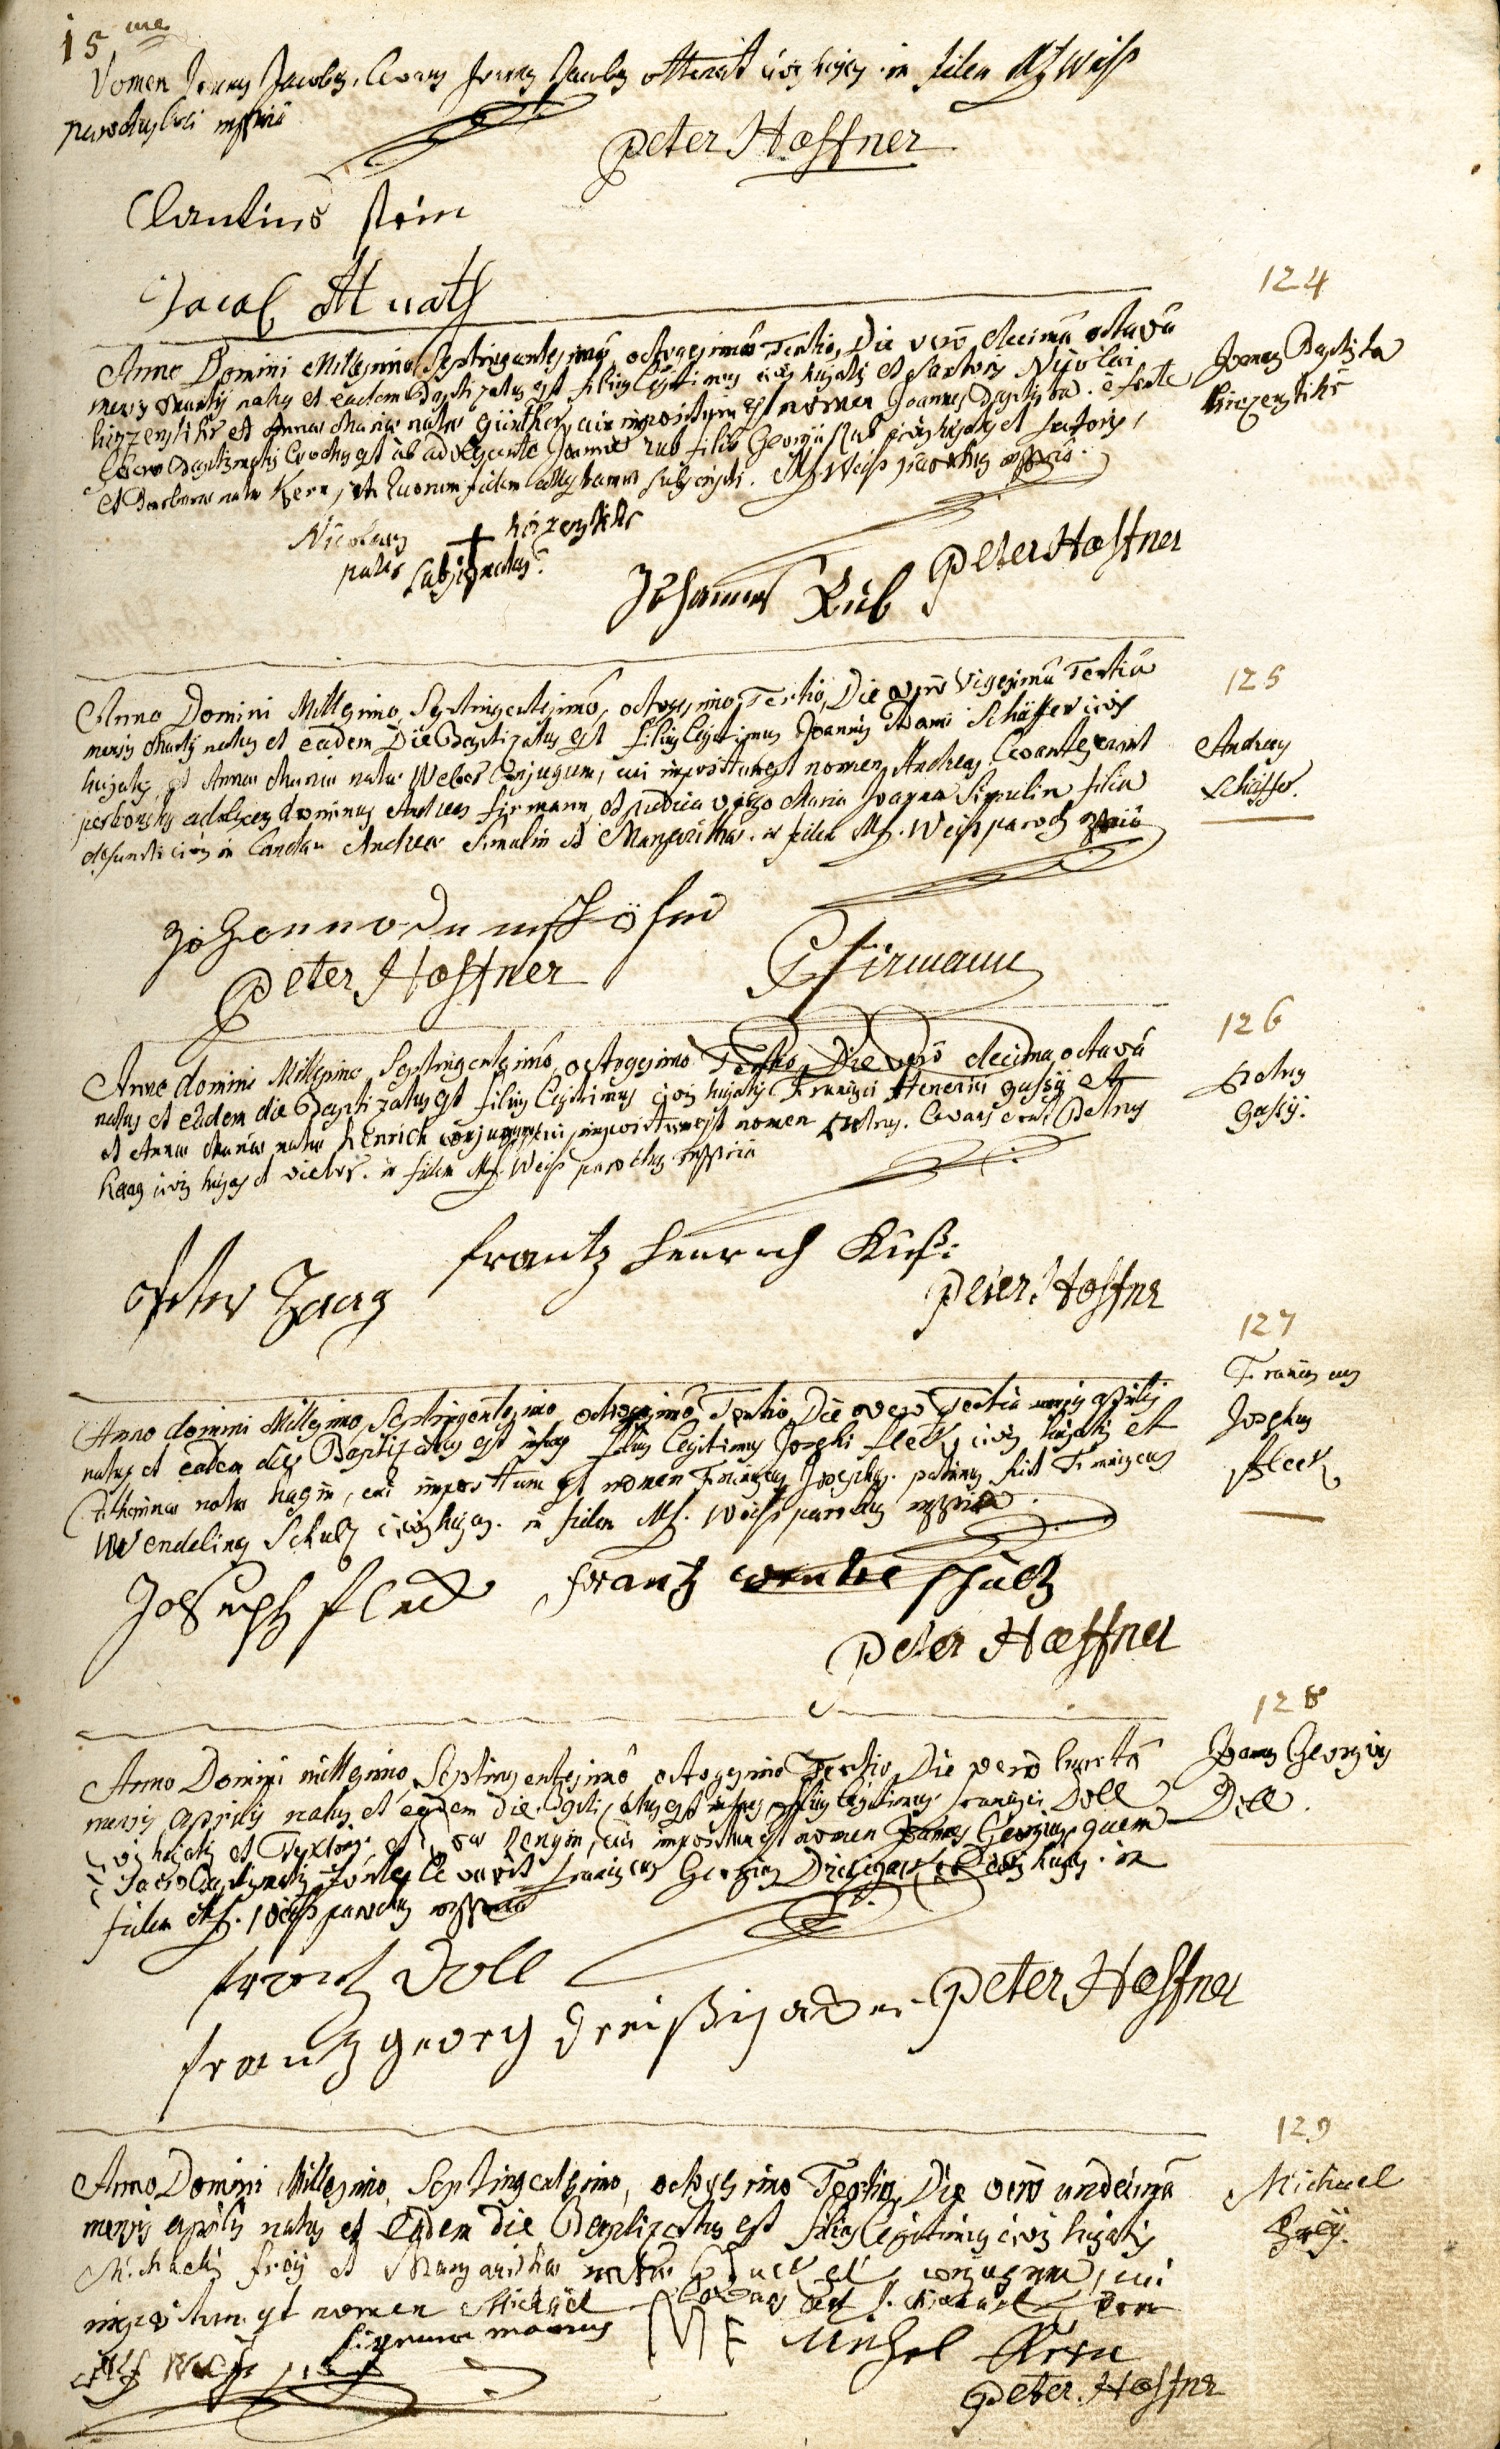 15 me
Nomen Joannes Jacobus. Levans Joannes Jacobus civis hujas. in fidem Mf Weiß
parochus loci mppriâ
Peter Hæffner
Clautius stein
Jacob
124
Anno Domini Millesimo Septingentesimô, octogesimô Tertio, Die verò decimâ octavâ
mensis Martij natus et eadem Baptizatus est filius legitimus civis hujatis et Sartoris Nicolai
et Annæ Mariæ natæ Günther, cui impositum est nomen Joannes Baptista. è fonte
Sacro Baptismatis levatus est ab adolescente Joanne Rub filio Georgii Rub civis hujatis et sartoris,
et Barbaræ natæ Kern, in quorum fidem attestamur subscripti. Mf Weiß parochus mppriâ.
Joannes Baptista
Nicolaus +
pater subsignatus.
Johannes Rub Peter Hæffner
125
Anno Domini Millesimo, Septingentesimô, octogesimo, Tertiô, Die verò Vigesimâ Tertiâ
mensis Martij natus et eâdem Die Baptizatus est filius legitimus Joannis Adami Schäffer civis
hujatis, et Annæ Mariæ natæ Weber Conjugum, cui impositum est nomen Andreas. Levantes erant
perhonestus adolescens dominus Andreas Firmann, et pudica virgo Maria Joanna Simulin filia
defuncti civis in Landau Andreæ Simulin et Margarithæ. in fidem Mf. Weiß paroch mppriâ
Andreas
Schäffer.
Peter Hæffner
Firmann
126
Anno domini Millesimo Septingentesimô, octogesimo Tertio, Die verô decima octavâ
natus et eâdem die Baptizatus est filius legitimus civis hujatis Francisci Henrici gussij et
et Annæ Mariæ natæ Henrich conjugum, cui impositum est nomen petrus. Levans erat Petrus
Haag civis hujas et viet. in fidem Mf. Weiß parochus mppriâ
Petrus
Gussij.
Peter Haag
frantz Henrich Kussi
Peter Hæffner
127
Anno domini Millesimo, Septingentesimo octogesimô Tertio, Die vero Tertiâ mensis aprilis
natus et eâdem die Baptizatus est infans filius legitimus Josephi fleck, civis hujatis et
Catharinæ natæ hagin, cui impositum est nomen Franciscus Josephus. patrinus fuit Franciscus
Wendelinus Schulz civis hujas. in fidem Mf. Weiß parochus mppriâ.
Franciscus
Josephus
fleck
Joseph fleck
frantz
Peter Hæffner
128
Anno Domini millesimo Septingentesimô octogesimo Tertio, Die verò quartâ
mensis aprilis natus et eâdem die Baptizatus est infans filius legitimus francisci Doll
civis hujatis et Textoris, et, cui impositum est nomen Joannes Georgius, quem
Sacro Baptismatis fonte levavit franciscus Georgius civis hujas. in
fidem Mf. Weiß parochus mppriâ
Joannes Georgius
Doll.
frantz Doll
frantz georg Dreißigacker Peter Hæffner
129
Anno Domini Millesimo, Septingentesimo, octogesimo Tertio, Die verò undecimâ
mensis aprilis natus et eâdem die Baptizatus est filius legitimus civis hujatis
Michaelis freij et Margarithæ natæ conjugum, cui
impositum est nomen Michael Levans erat Michael Kern
Mf Weiß
signum manus MF Michel Kern
Peter Hæffner
Michael
freij.